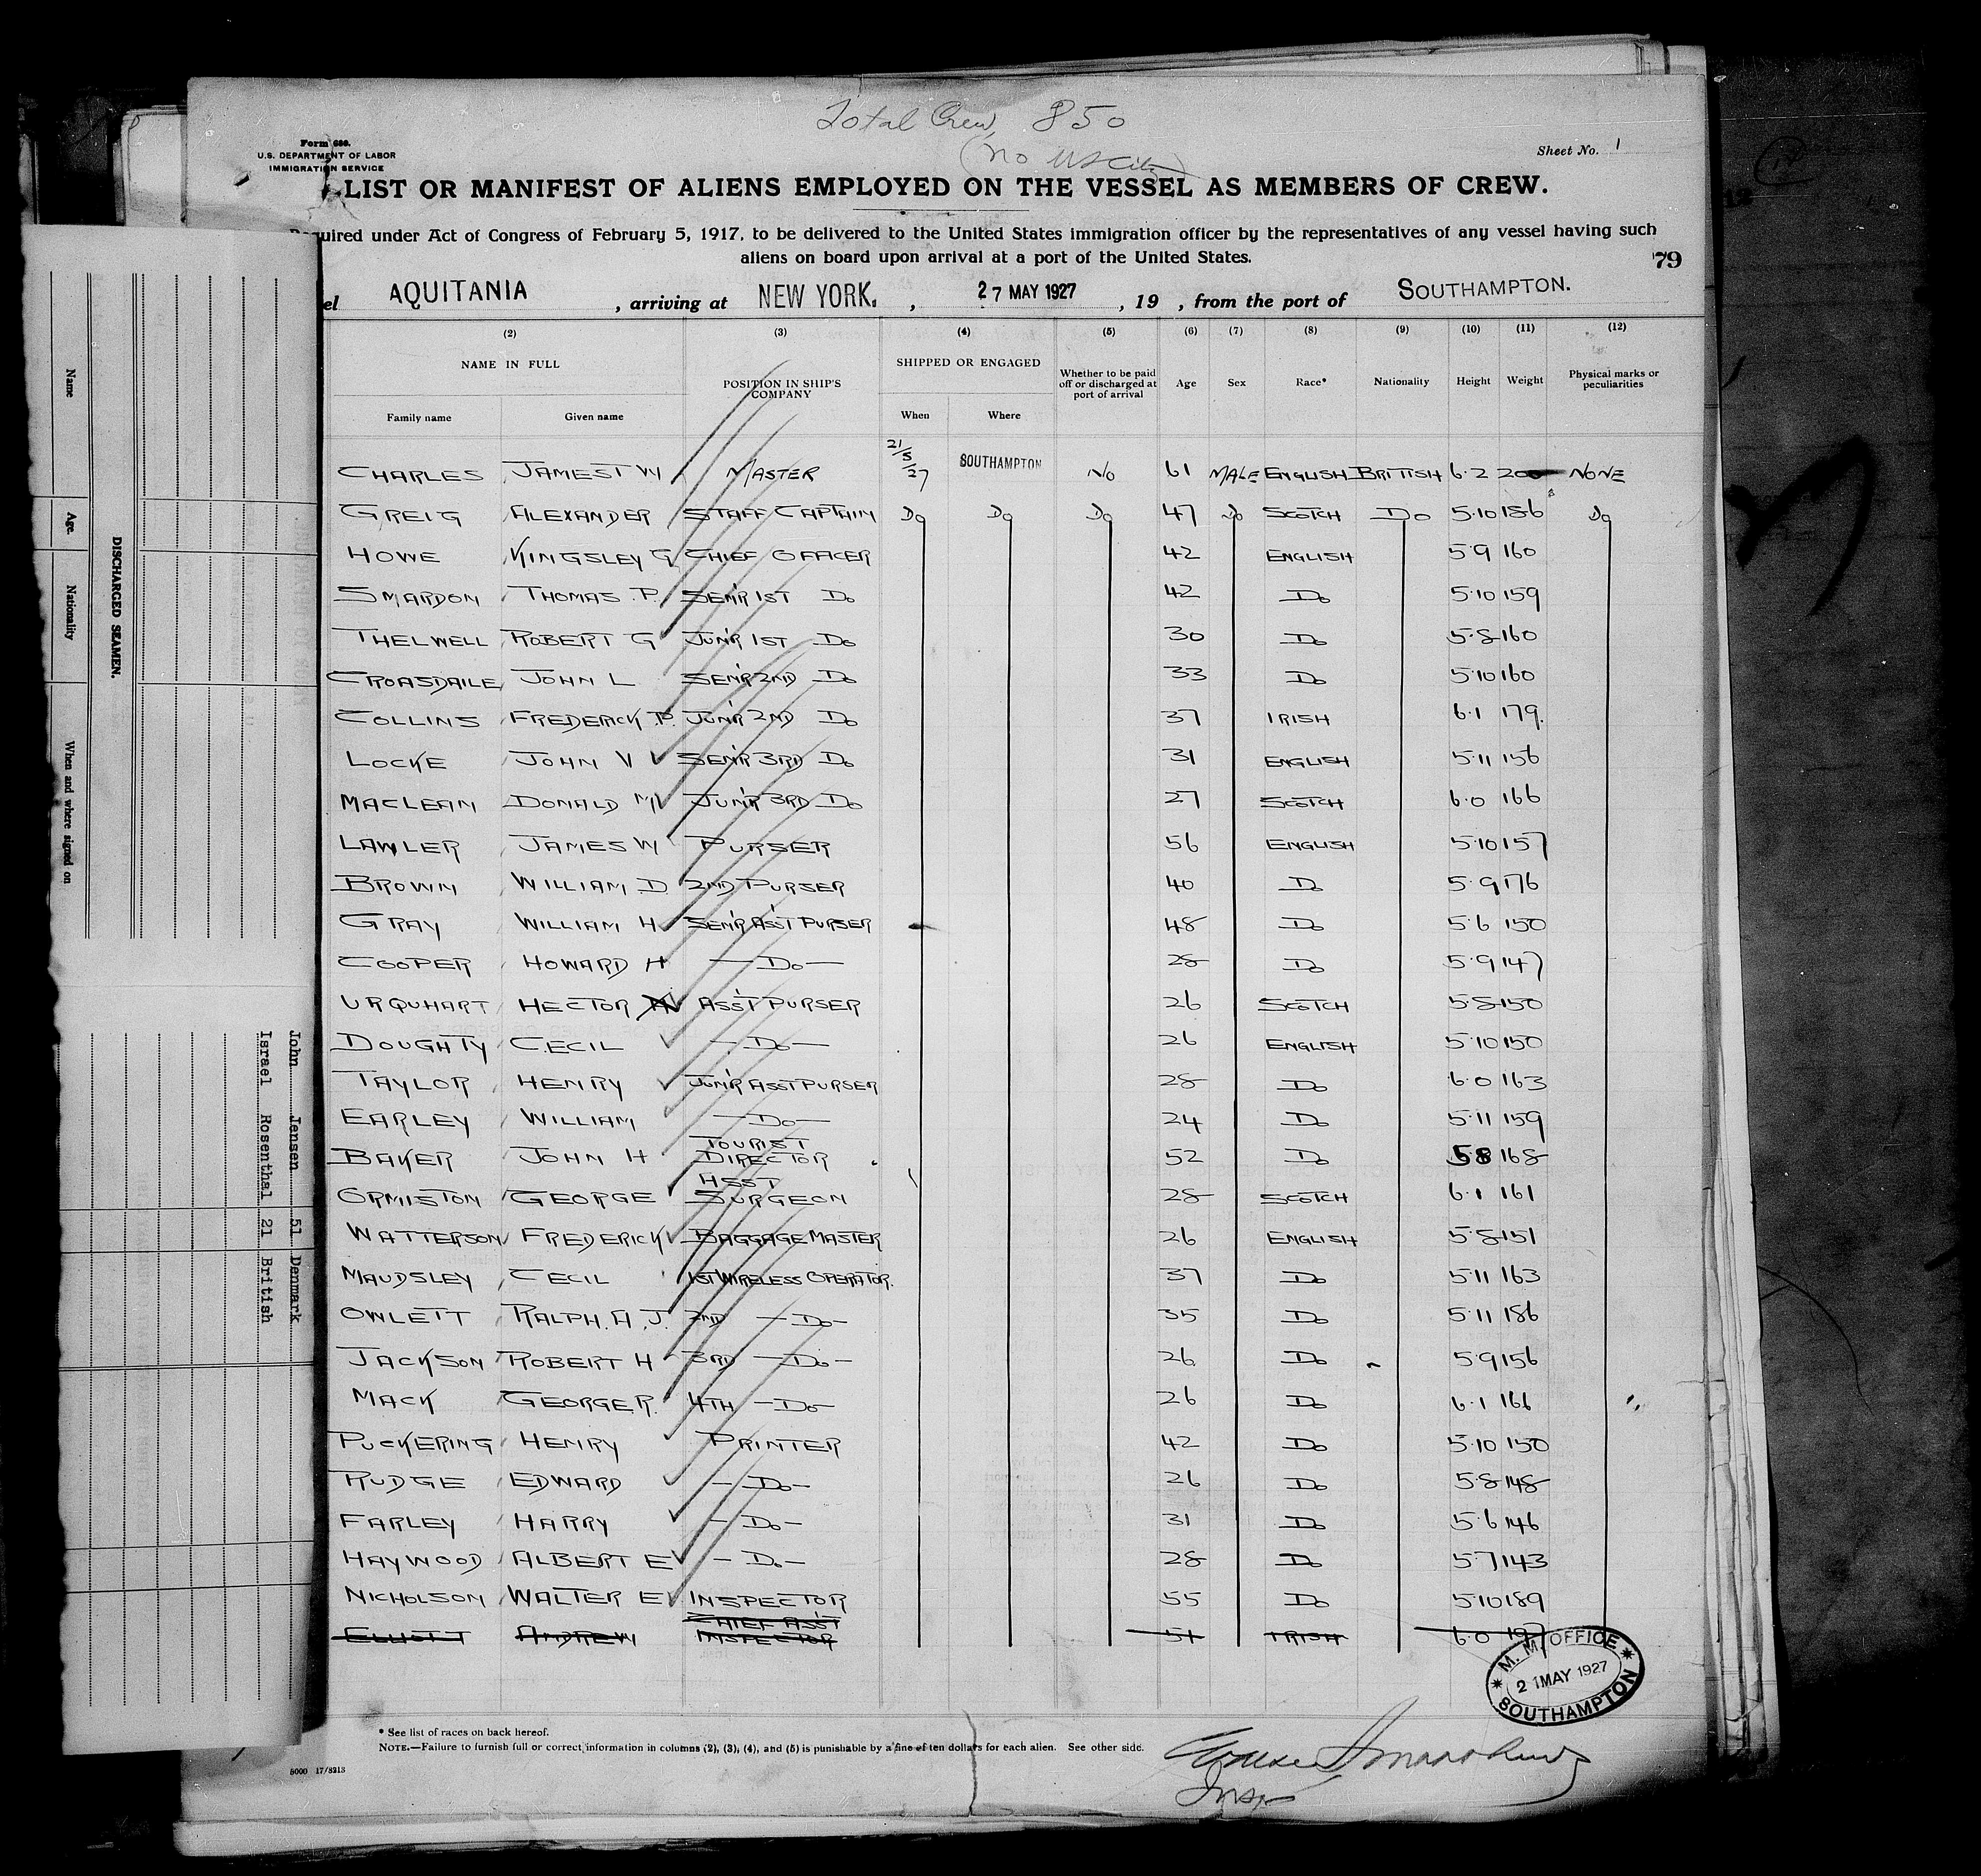 Total Crew, 850
(No US Cits)
Form 686.
U.S. DEPARTMENT OF LABOR
IMMIGRATION SERVICE
Sheet No. 1
LIST OR MANIFEST OF ALIENS EMPLOYED ON THE VESSEL AS MEMBERS OF CREW.
Required under Act of Congress of February 5, 1917, to be delivered to the United States immigration officer by the representatives of any vessel having such
aliens on board upon arrival at a port of the United States.
79
el AQUITANIA, arriving at NEW YORK., 27 MAY 1927, 19 , from the port of SOUTHAMPTON.
(2) (3) (4) (5) (6) (7) (8) (9) (10) (11) (12)
NAME IN FULL POSITION IN SHIP'S COMPANY SHIPPED OR ENGAGED Whether to be paid off or discharged at port of arrival Age Sex Race* Nationality Height Weight Physical marks or peculiarities
Family name Given name When Where
CHARLES JAMES T W MASTER 21/5/27 SOUTHAMPTON No 61 MALE ENGLISH BRITISH 6·2 200 NONE
GREIG ALEXANDER STAFF CAPTAIN Do Do Do 47 Do SCOTCH Do 5·10 186 Do
HOWE KINGSLEY G CHIEF OFFICER 42 ENGLISH 5·9 160
SMARDON THOMAS P. SEN'R 1ST Do 42 Do 5·10 159
THELWELL ROBERT G JUN'R 1ST Do 30 Do 5·8 160
CROASDAILE JOHN L SEN'R 2ND Do 33 Do 5·10 160
COLLINS FREDERICK P. JUN'R 2ND Do 37 IRISH 6·1 179.
LOCKE JOHN V SEN'R 3RD Do 31 ENGLISH 5·11 156
MACLEAN DONALD M JUN'R 3RD Do 27 SCOTCH 6·0 166
LAWLER JAMES W PURSER 56 ENGLISH 5·10 157
BROWN WILLIAM D. 2ND PURSER 40 Do 5·9 176
GRAY WILLIAM H SEN'R ASS'T PURSER 48 Do 5·6 150
COOPER HOWARD H —Do— 28 Do 5·9 147
URQUHART HECTOR ASS'T PURSER 26 SCOTCH 5·8 150
DOUGHTY CECIL —Do— 26 ENGLISH 5·10 150
TAYLOR HENRY JUN'R ASS'T PURSER 28 Do 6·0 163
EARLEY WILLIAM —Do— 24 Do 5·11 159
BAKER JOHN H TOURIST DIRECTOR 52 Do 5 8 168
ORMISTON GEORGE ASST SURGEON 28 SCOTCH 6·1 161
WATTERSON FREDERICK BAGGAGE MASTER 26 ENGLISH 5·8 151
MAUDSLEY CECIL 1ST WIRELESS OPERATOR. 37 Do 5·11 163
OWLETT RALPH. A. J. 2ND —Do— 35 Do 5·11 186
JACKSON ROBERT H 3RD —Do— 26 Do 5·9 156
MACK GEORGE R. 4TH —Do— 26 Do 6·1 166
PUCKERING HENRY PRINTER 42 Do 5·10 150
RUDGE EDWARD —Do— 26 Do 5·8 148
FARLEY HARRY —Do— 31 Do 5·6 146
HAYWOOD ALBERT E —Do— 28 Do 5·7 143
NICHOLSON WALTER E INSPECTOR 55 Do 5·10 189
ELLIOTT ANDREW CHIEF ASS'T INSPECTOR 51 IRISH 6·0 197
M. M. OFFICE
21 MAY 1927
SOUTHAMPTON
* See list of races on back hereof.
NOTE.—Failure to furnish full or correct information in columns (2), (3), (4), and (5) is punishable by a fine of ten dollars for each alien. See other side.
5000 17/8213
Insp
DISCHARGED SEAMEN.
Name Age. Nationality When and where signed on
John Jensen 51 Denmark
Israel Rosenthal 21 British